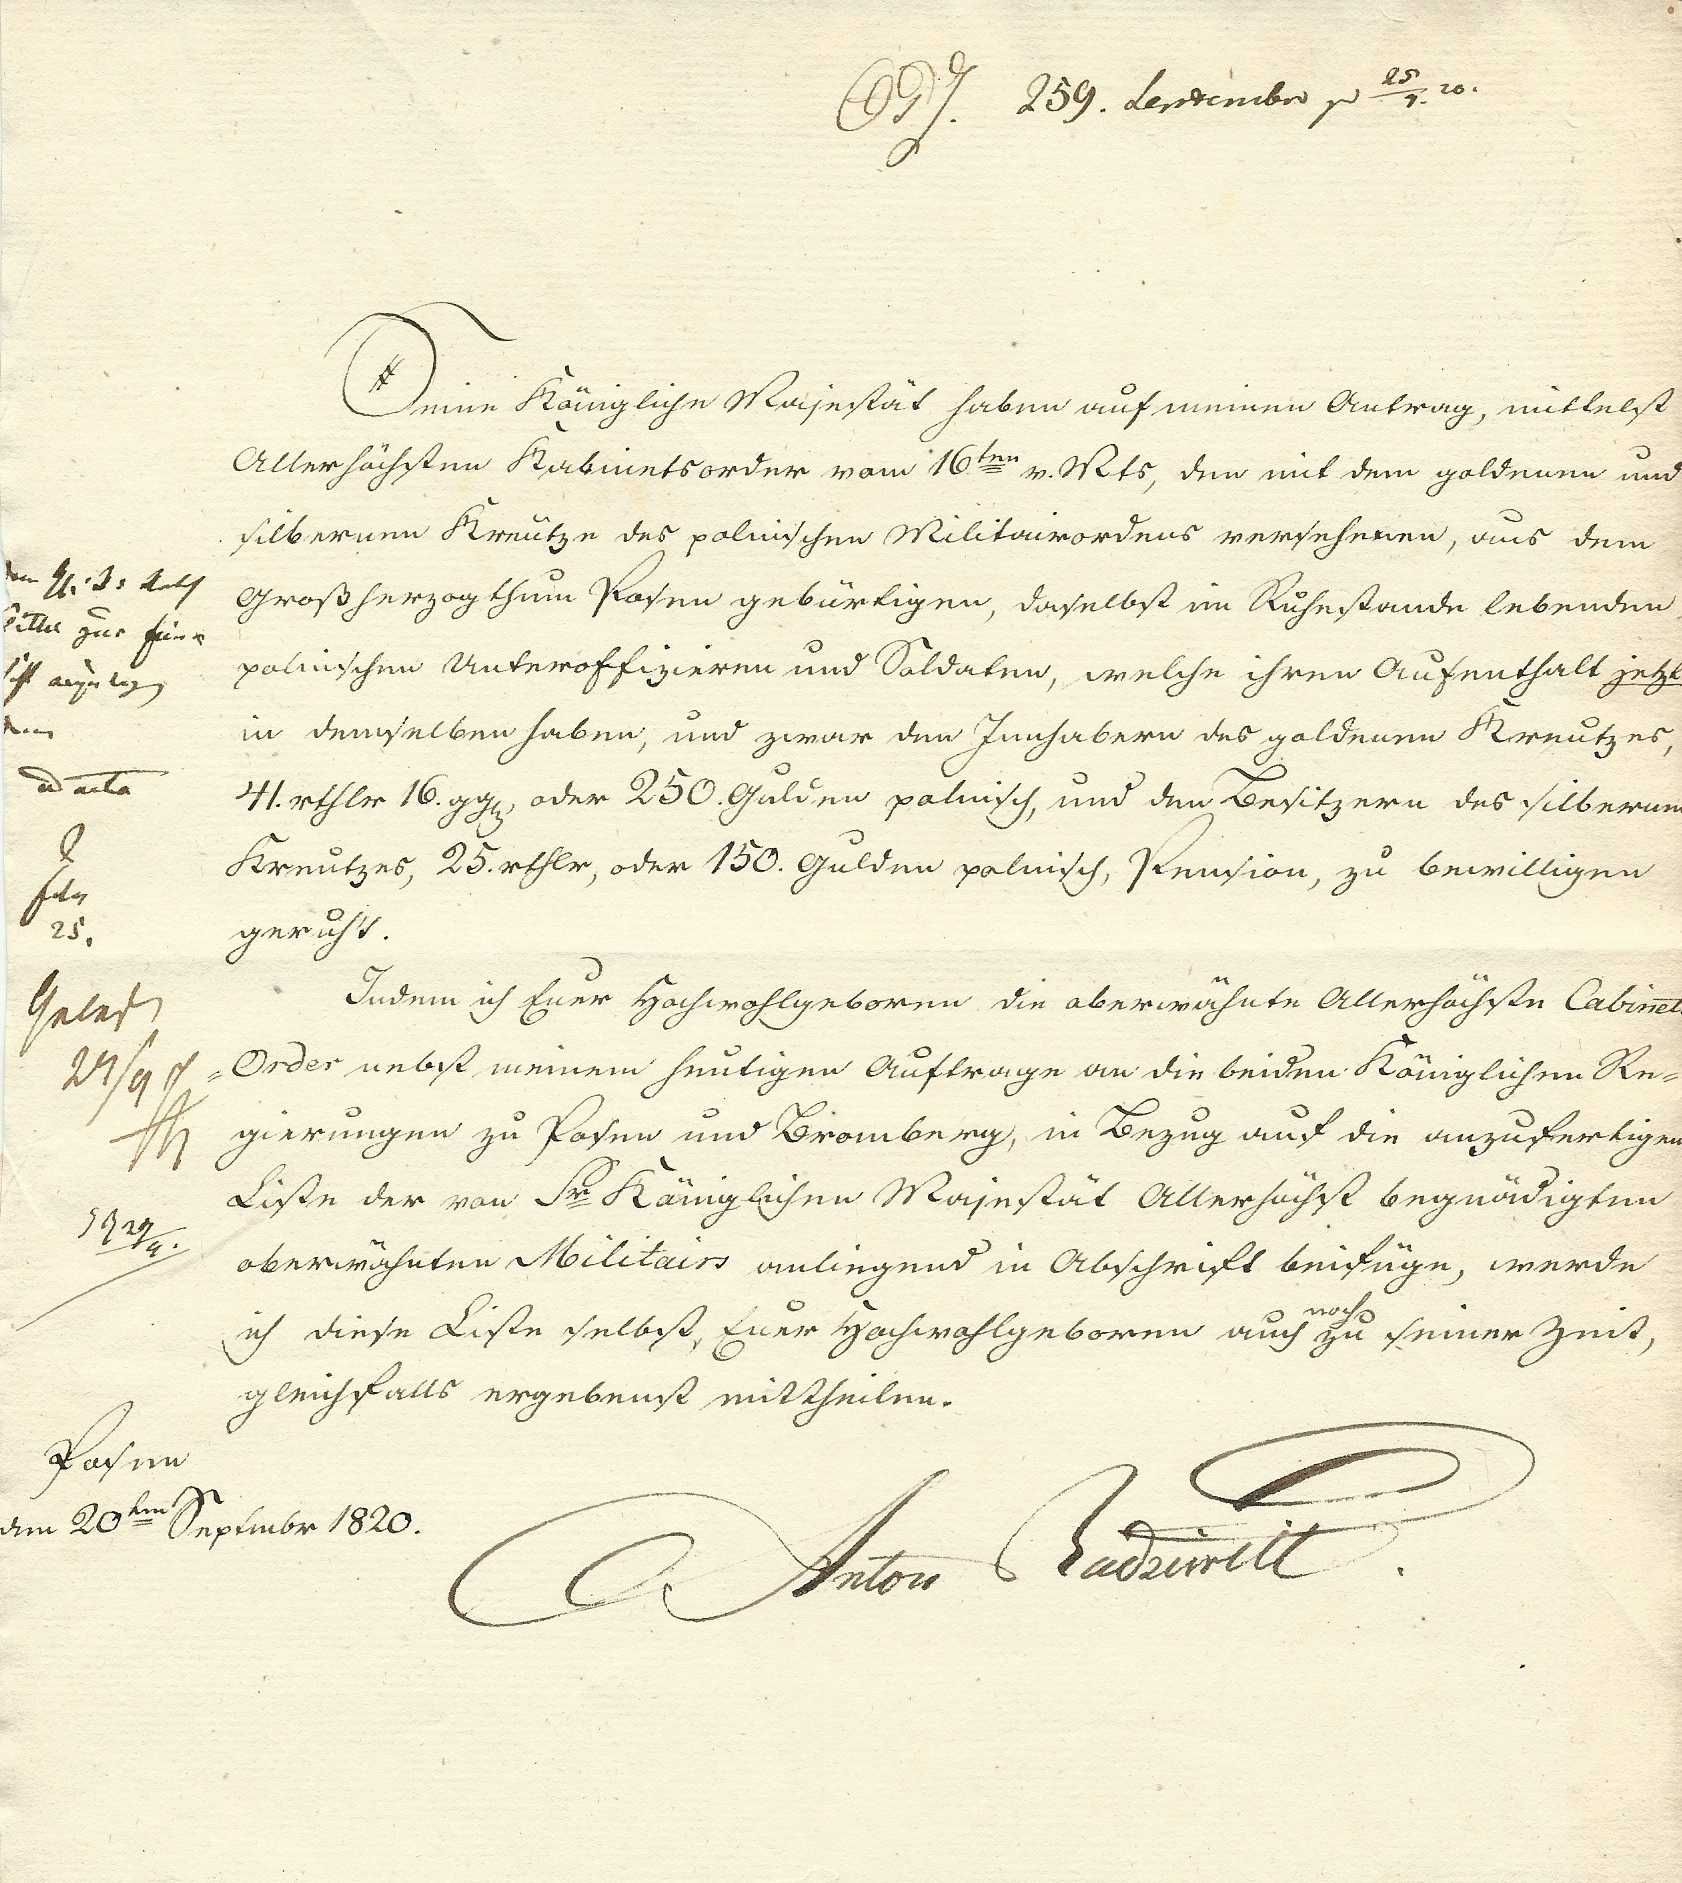 259. September p 25/9. 20.
Seine Königliche Majestät haben auf meinen Antrag, mittelst
Allerhöchsten Kabinetsorder vom 16ten v. Mts, den mit dem goldenen und
silbernen Kreutze des polnischen Militairordens versehenen, aus dem
Großherzogthum Posen gebürtigen, daselbst im Ruhestande lebenden
polnischen Unteroffizieren und Soldaten, welche ihren Aufenthalt jetzt
in demselben haben, und zwar den Innhabern des goldenen Kreutzes,
41. rthlr 16. ggr, oder 250. Gulden polnisch, und den Besitzern des silbernen
Kreutzes, 25. rthlr, oder 150. Gulden polnisch, Pension, zu bewilligen
geruht.
Indem ich Euer Hochwohlgeboren die oberwähnte Allerhöchste Cabinets
=Order nebst meinem heutigen Auftrage an die beiden Königlichen Re=
gierungen zu Posen und Bromberg, in Bezug auf die anzufertigende
Liste der von Sr Königlichen Majestät Allerhöchst begnädigten
oberwähnten Militairs anliegend in Abschrift beifüge, werde
ich diese Liste selbst, Euer Hochwohlgeboren auch noch zu seiner Zeit,
gleichfalls ergebenst mittheilen.
Posen
den 20ten September 1820.
Anton Radziwill.
ad acta
25.